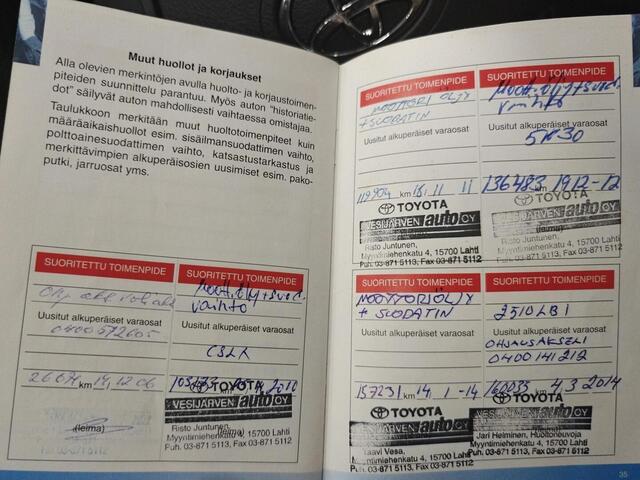 Muut huollot ja korjaukset
Alla olevien merkintöjen avulla huolto- ja korjaustoimen-
piteiden suunnittelu parantuu. Myös auton "historiatie-
dot" säilyvät auton mahdollisesti vaihtaessa omistajaa.
Taulukkoon merkitään muut huoltotoimenpiteet kuin
määräaikaishuollot esim. sisäilmansuodattimen vaihto,
polttoainesuodattimen vaihto, katsastustarkastus ja
merkittävimpien alkuperäisosien uusimiset esim. pako-
putki, jarruosat yms.
SUORITETTU TOIMENPIDE
Uusitut alkuperäiset varaosat
0400572605
26671 km 14,12 06
(leima)
SUORITETTU TOIMENPIDE
Moott.öljy+suod.
vaihto
Uusitut alkuperäiset varaosat
km
TOYOTA
VESIJÄRVEN auto OY
Risto Juntunen,
Myyntimiehenkatu 4, 15700 Lahti
Puh. 03-871 5113, Fax 03-871 5112
SUORITETTU TOIMENPIDE
MOOTTORIÖLJY
+SUODATIN
Uusitut alkuperäiset varaosat
119904 km 15.11 11
TOYOTA
VESIJÄRVEN auto OY
Risto Juntunen,
Myyntimiehenkatu 4, 15700 Lahti
Puh. 03-871 5113, Fax 03-871 5112
SUORITETTU TOIMENPIDE
Moott.öljy+suod.
vaihto
Uusitut alkuperäiset varaosat
5W30
136483 km 1912-12
TOYOTA
VESIJÄRVEN auto OY
(leima)
Risto Juntunen,
Myyntimiehenkatu 4, 15700 Lahti
Puh. 03-871 5113, Fax 03-871 5112
SUORITETTU TOIMENPIDE
MOOTTORIÖLJY
+ SUODATIN
Uusitut alkuperäiset varaosat
157231 km 14. 1 -14
TOYOTA
VESIJÄRVEN auto OY
Taavi Vesa,
Myyntimiehenkatu 4, 15700 Lahti
Puh. 03-871 5113, Fax 03-871 5112
SUORITETTU TOIMENPIDE
2510LB1
Uusitut alkuperäiset varaosat
OHJAUSAKSELI
0400141212
160033 km 4.3 2014
TOYOTA
VESIJÄRVEN auto OY
Jari Helminen, Huoltoneuvoja
Myyntimiehenkatu 4, 15700 Lahti
Puh. 03-871 5113, Fax 03-871 5112
35